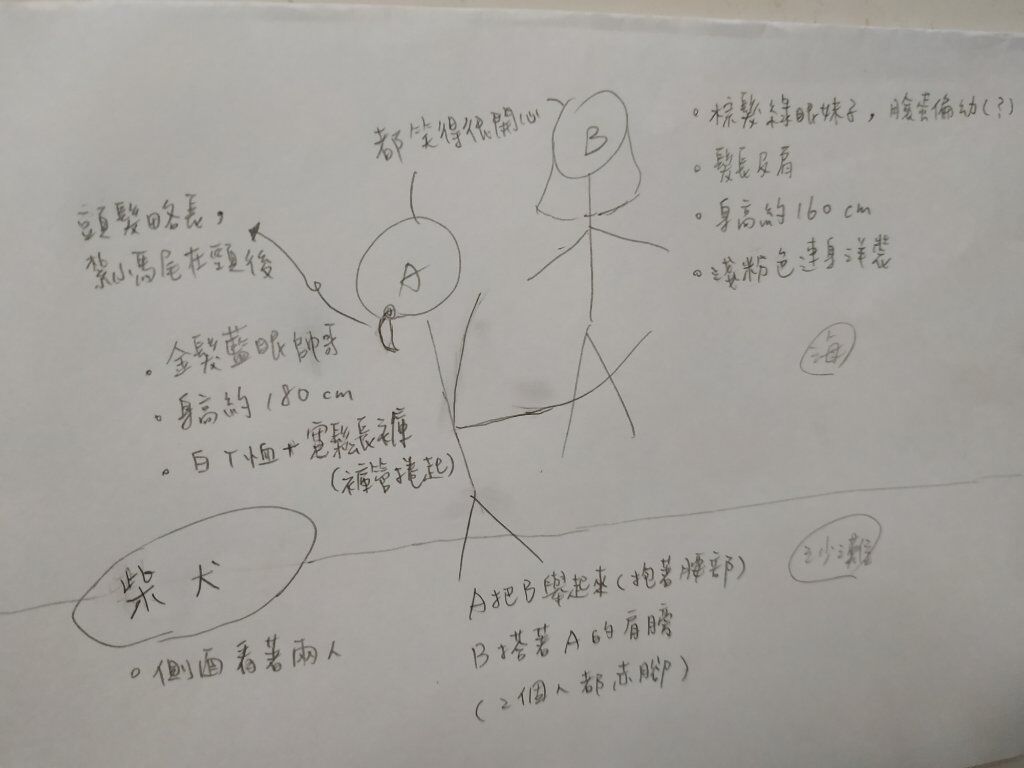 都笑得很開心
B
。棕髮綠眼妹子，臉蛋偏幼(?)
。髮長及肩
。身高約160 cm
。淺粉色連身洋裝
頭髮略長，
紮小馬尾在頸後
A
。金髮藍眼帥哥
。身高約180 cm
。白T恤+寬鬆長褲
(褲管捲起)
海
沙灘
柴犬
。側面看著兩人
A把B舉起來(抱著腰部)
B搭著A的肩膀
(2個人都赤腳)